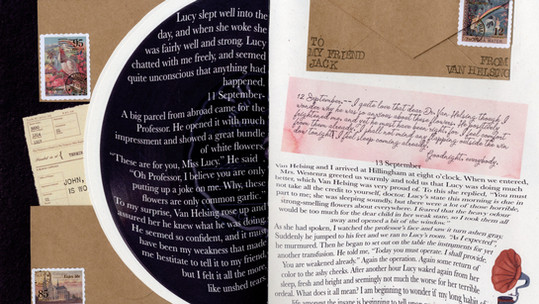 Lucy slept well into the
day, and when she woke she
was fairly well and strong. Lucy
chatted with me freely, and seemed
quite unconscious that anything had
happened.
11 September-
A big parcel from abroad came for the
Professor. He opened it with much
impressment and showed a great bundle
of white flowers.
"These are for you, Miss Lucy." He said
"Oh Professor, I believe you are only
putting up a joke on me. Why, these
flowers are only common garlic."
To my surprise, Van Helsing rose up and
assured her he knew what he was doing.
He seemed so confident, and it must
have been my weakness that made
me hestitate to tell it to my friend,
but I felt it all the more,
like unshed tears.
95
JOHN,
IS NO
85
TO
MY FRIEND
JACK
FROM
VAN HELSING
12 September.-- I quite love that dear Dr. Van Helsing though I
Goodnight everybody.
13 September
Van Helsing and I arrived at Hillingham at eight o'clock. When we entered,
Mrs. Westenra greeted us warmly and told us that Lucy was doing much
better, which Van Helsing was very proud of. To this she replied, "You must
not take all the credit to yourself, doctor. Lucy's state this morning is due in
part to me; she was sleeping soundly, but there were a lot of those horrible,
strong-smelling flowers about everywhere. I feared that the heavy-odour
would be too much for the dear child in her weak state, so I took them all
away and opened a bit of the window."
As she had spoken, I watched the professor's face and saw it turn ashen gray.
Suddenly he jumped to his feet and we ran to Lucy's room. "As I expected",
he murmured. Then he began to set out on the table the instruments for yet
another transfusion. He told me, "Today you must operate. I shall provide.
You are weakened already." Again the operation. Again some return of
color to the ashy cheeks. After another hour Lucy waked again from her
sleep, fresh and bright and seemingly not much the worse for her terrible
ordeal. What does it all mean? I am beginning to wonder if my long habit of
life amongst the insane is beginning to tell upon